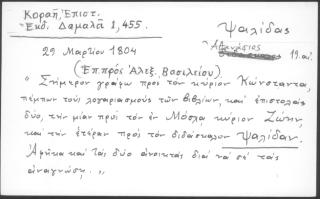 Κοραῆ, Ἐπιστ.
Ἔκδ. Δαμαλᾶ 1,455.
Ψαλίδας
Ἀθανάσιος
19 αἰ.
29 Μαρτίου 1804
(Ἐπ πρὸς Ἀλεξ. Βασιλείου).
"Σήμερον γράφω πρὸς τὸν κύριον Κώνσταντα,
πέμπων τοὺς λογαριασμοὺς τῶν βιβλίων, καὶ ἐπιστολὰς
δύο, τὴν μίαν πρὸς τὸν ἐν Μόσχᾳ κύριον Ζώην,
καὶ τὴν ἑτέραν πρὸς τὸν διδάσκαλον Ψαλίδαν.
Ἀφῆκα καὶ τὰς δύο ἀνοικτὰς διὰ νὰ σὲ τὰς
ἀναγνώσῃ."